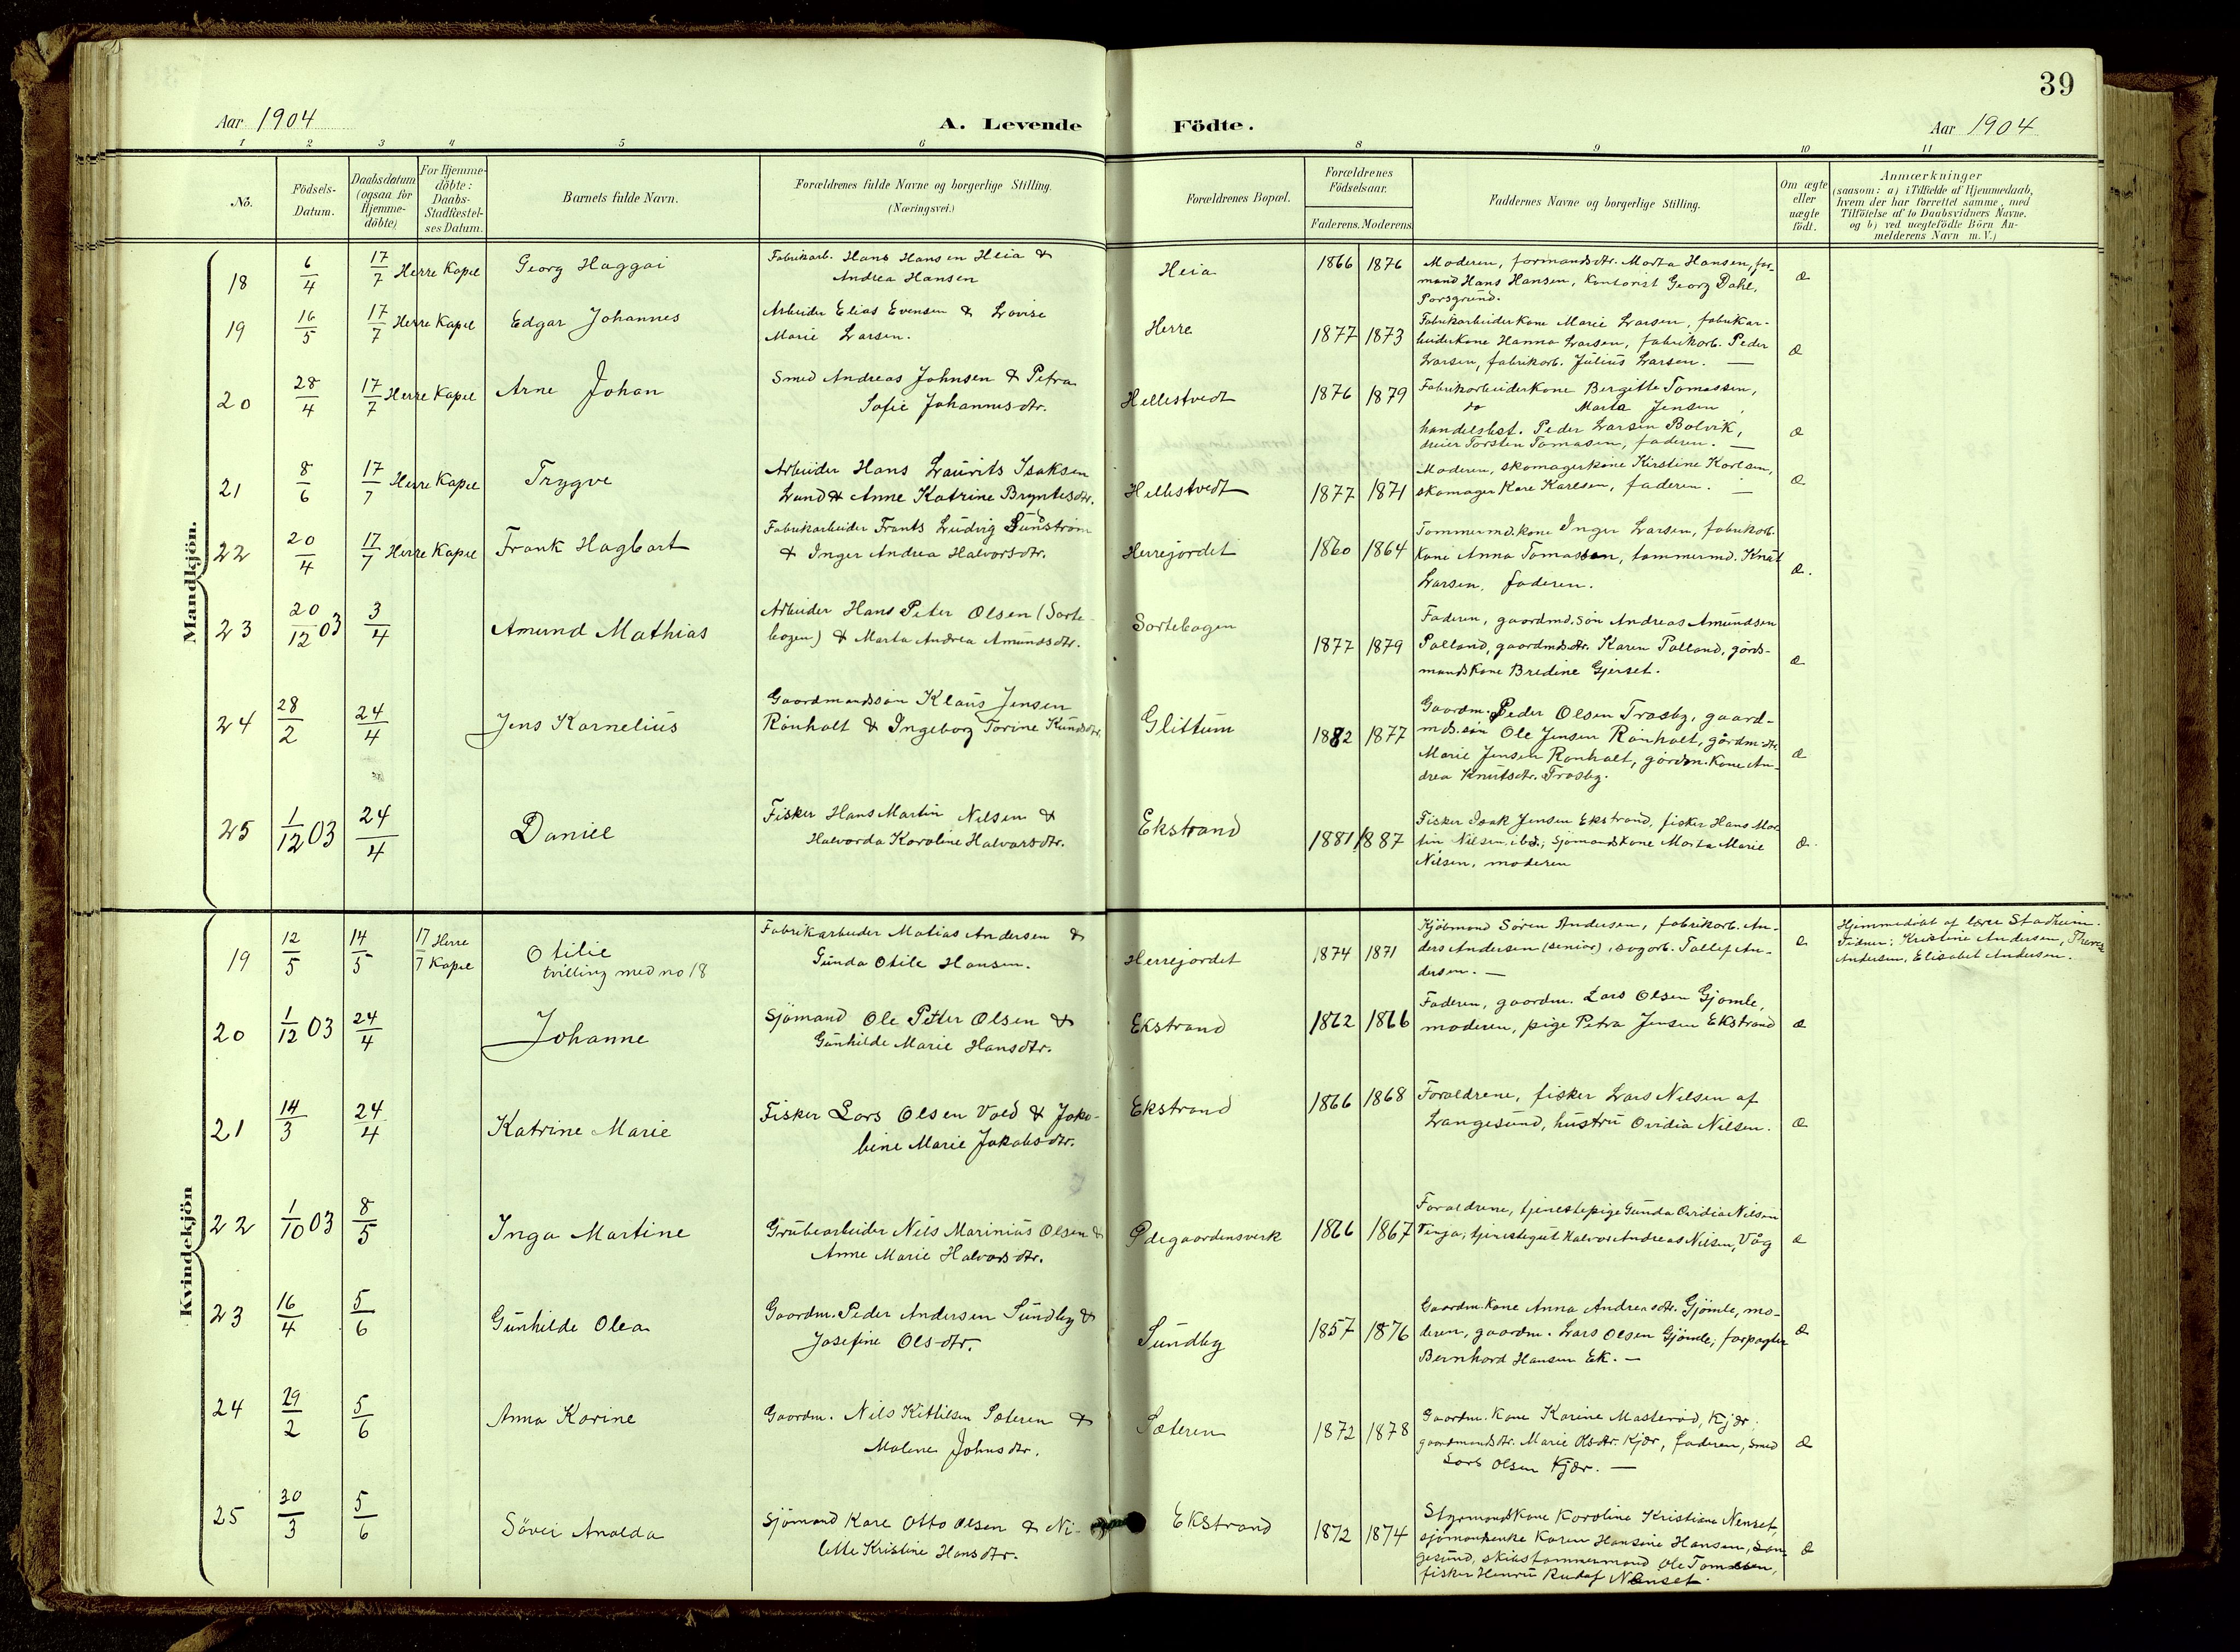 39
Aar 1904
A. Levende Födte.
Aar 1904
1 2 3 4 5 6 8 9 10 11
No.
Födsels-Datum.
Daabsdatum (ogsaa for Hjemme-döbte)
For Hjemme-döbte: Daabs-Stadfæstel-ses Datum.
Barnets fulde Navn.
Forældrenes fulde Navne og borgerlige Stilling.
(Næringsvei.)
Forældrenes Bopæl.
Forældrenes Födselsaar.
Faderens. Moderens.
Faddernes Navne og borgerlige Stilling.
Om ægte eller uægte födt.
Anmærkninger
(saasom: a) i Tilfælde af Hjemmedaab,
hvem der har forrettet samme, med
Tilföielse af to Daabsvidners Navne.
og b) ved uægtefödte Börn An-
melderens Navn m. V.)
Mandkjön.
18 6/4 17/7 Herre Kapel Georg Haggai
Fabrikarb. Hans Hansen Heia &
Andrea Hansen
Heia 1866 1876
Moderen, formandsdtr. Marta Hansen, for-
mand Hans Hansen, Kontorist Georg Dahl,
Porsgrund.
æ
19 16/5 17/7 Herre Kapel Edgar Johannes
Arbeider Elias Evensen & Lovise
Marie Larsen.
Herre 1877 1873
Fabrikarbeiderkone Marie Larsen, fabrikar-
beiderkone Hanna Larsen, fabrikarb. Peder
Larsen, fabrikarb. Julius Larsen. —
æ
20 28/4 17/7 Herre Kapel Arne Johan
Smed Andreas Johnsen & Petra
Sofie Johannesdtr.
Hellestvedt 1876 1879
Fabrikarbeiderkone Bergitte Tomassen,
do Marta Jensen,
handelsbst. Peder Larsen Bolvik,
dreier Torsten Tomasen, faderen. —
æ
21 8/6 17/7 Herre Kapel Trygve
Arbeider Hans Laurits Isaksen
Lund & Anne Katrine Bryntesdtr.
Hellestvedt 1877 1871
Moderen, skomagerkone Kirstine Karlsen,
skomager Kare Karlsen, faderen. —
æ
22 20/4 17/7 Herre Kapel Frank Hagbart
Fabrikarbeider Frants Ludvig Sundstrøm
& Inger Andrea Halvorsdtr.
Herrejordet 1860 1864
Tømmermd.kone Inger Larsen, fabrikarb.
kone Anna Tomassen, tømmermd. Knut
Larsen, faderen.
æ.
23 20/12 03 3/4 Amund Mathias
Arbeider Hans Peter Olsen (Sorte-
bogen) & Marta Andrea Amundsdtr.
Sortebogen 1877 1879
Faderen, gaardmd.søn Andreas Amundsen
Palland, gaardmdsdtr. Karen Palland, gårds-
mandskone Bredine Gjerset.
æ
24 28/2 24/4 Jens Kornelius
Gaardmandssøn Klaus Jensen
Rønholt & Ingeborg Torine Knudsdtr.
Glittum 1882 1877
Gaardm. Peder Olsen Trosby, gaard-
mds.søn Ole Jensen Rønholt, gårdm.dtr.
Marie Jensen Rønholt, gårdm.kone An-
drea Knutsdtr. Trosby.
æ
25 1/12 03 24/4 Daniel
Fisker Hans Martin Nilsen &
Halvorda Karoline Halvorsdtr.
Ekstrand 1881 1887
Fisker Isak Jensen Ekstrand, fisker Hans Mar-
tin Nilsen, ibd.; Sjømandskone Marta Marie
Nilsen, moderen
æ.
Kvindekjön
19 12/5 14/5 17/7 Herre Kapel Otilie
tvilling med no 18
Fabrikarbeider Matias Andersen &
Gunda Otile Hansen.
Herrejordet 1874 1871
Kjøbmand Søren Andersen, fabrikarb. An-
ders Andersen (senior), sagarb. Tallef An-
dersen. —
æ
Hjemmedøbt af lærer Stadheim.
Vidner: Kristine Andersen,
Andersen, Elisabet Andersen.
20 1/12 03 24/4 Johanne
Sjømand Ole Petter Olsen &
Gunhilde Marie Hansdtr.
Ekstrand 1862 1866
Faderen, gaardm. Lars Olsen Gjømle,
moderen, pige Petra Jensen Ekstrand
æ
21 14/3 24/4 Katrine Marie
Fisker Lars Olsen Vold & Jako-
bine Marie Jakobsdtr.
Ekstrand 1866 1868
Forældrene, fisker Lars Nilsen af
Langesund, hustru Ovidia Nilsen.
æ
22 1/10 03 8/5 Inga Martine
Grubearbeider Nils Marinius Olsen &
Anne Marie Halvorsdtr.
Ødegaardensverk 1866 1867
Forældrene, tjenestepige Gunda Ovidia Nilsen
Tinja, tjenestegut Halvor Andreas Nilsen, Våg
æ
23 16/4 5/6 Gunhilde Olea
Gaardm. Peder Andersen Sundby &
Josefine Olsdtr.
Sundby 1857 1876
Gaardm.kone Anna Andreasdtr. Gjømle, mo-
deren, gaardm. Lars Olsen Gjømle, forpagter
Bernhard Hansen Ek. —
æ
24 29/2 5/6 Anna Karine
Gaardm. Nils Kittilsen Sæteren &
Malene Johnsdtr.
Sæteren 1872 1878
Gaardm. kone Karine Masterød, Kjær,
gaardmandsdtr. Marie Olsdtr. Kjær, faderen, smed
Lars Olsen Kjær. —
æ
25 30/3 5/6 Sövei Analda
Sjømand Kare Otto Olsen & Ni-
lette Kristine Hansdtr.
Ekstrand 1872 1874
Styrmandskone Karoline Kristiane Nenset,
sjømandsenke Karen Hansine Hansen, Lan-
gesund, skibstømmermand Ole Tomassen,
fisker Henrik Rudolf Nenset.
æ